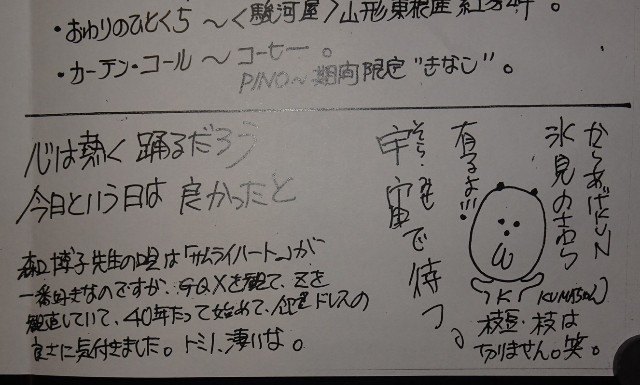 ・おわりのひとくち〜〈駿河屋〉山形東根産紅秀峰。
・カーテン・コール〜コーヒー。
PINO〜期間限定"きなこ"。
心は熱く 踊るだろう
今日という日は 良かったと
森口博子先生の唄は「サムライハート」が
一番好きなのですが、GQXを観て、Zを
観直していて、40年たって始めて、金色ドレスの
良さに気付きました。トミノ、凄いな。
からあげKUN
氷見のさわら
有るよ!!!
そら
宇宙で待つ。
KUMAさん
枝豆・枝は
切りません。笑。